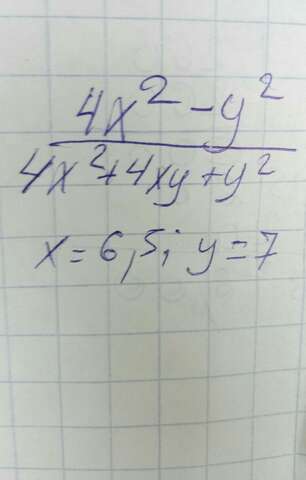 4x² - y²
4x² + 4xy + y²
x = 6,5; y = 7